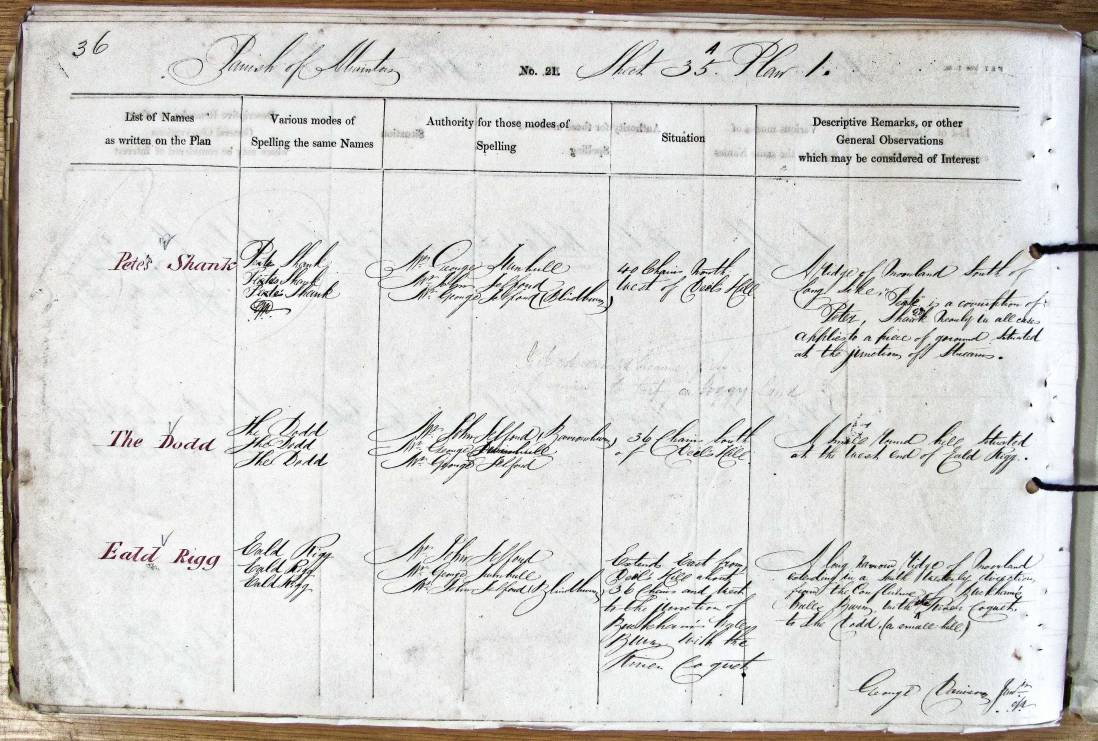 36
Parish of
No. 21.
Sheet 35 A Plan 1.
List of Names
as written on the Plan
Various modes of
Spelling the same Names
Authority for those modes of
Spelling
Situation
Descriptive Remarks, or other
General Observations
which may be considered of Interest
Pete's Shank
Shank
Shank
Shank
Mr. George Turnbull
Mr. John Telford
Mr. George Telford (Blindburn)
40 Chains North
West of Deel's Hill
A ridge of Moorland South of
Long Sike. is a corruption of
Petes, Shank nearly in all cases
applies to a piece of ground situated
at the junction of Streams.
a boggy land
The Dodd
The Dodd
The Dodd
The Dodd
Mr. John Telford
Mr. George Turnbull
Mr. George Telford
36 Chains South
of Deel's Hill
A small round hill situated
at the West end of Eald Rigg.
Eald Rigg
Eald Rigg
Eald Rigg
Eald Rigg
Mr. John Telford
Mr. George Turnbull
Mr. John Telford (Blindburn)
Extends East from
Deel's Hill about
36 Chains and West
to the junction of
Buckham's Walls
Burn with the
River Coquet
A long narrow ridge of Moorland
extending in a South Westerly direction,
from the Confluence of Buckham's
Walls Burn with the River Coquet
to the Dodd. (a small hill)
George